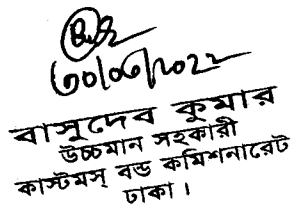 ৩০/০৬/২০২২
বাসুদেব কুমার
উচ্চমান সহকারী
কাস্টমস্ বন্ড কমিশনারেট
ঢাকা।